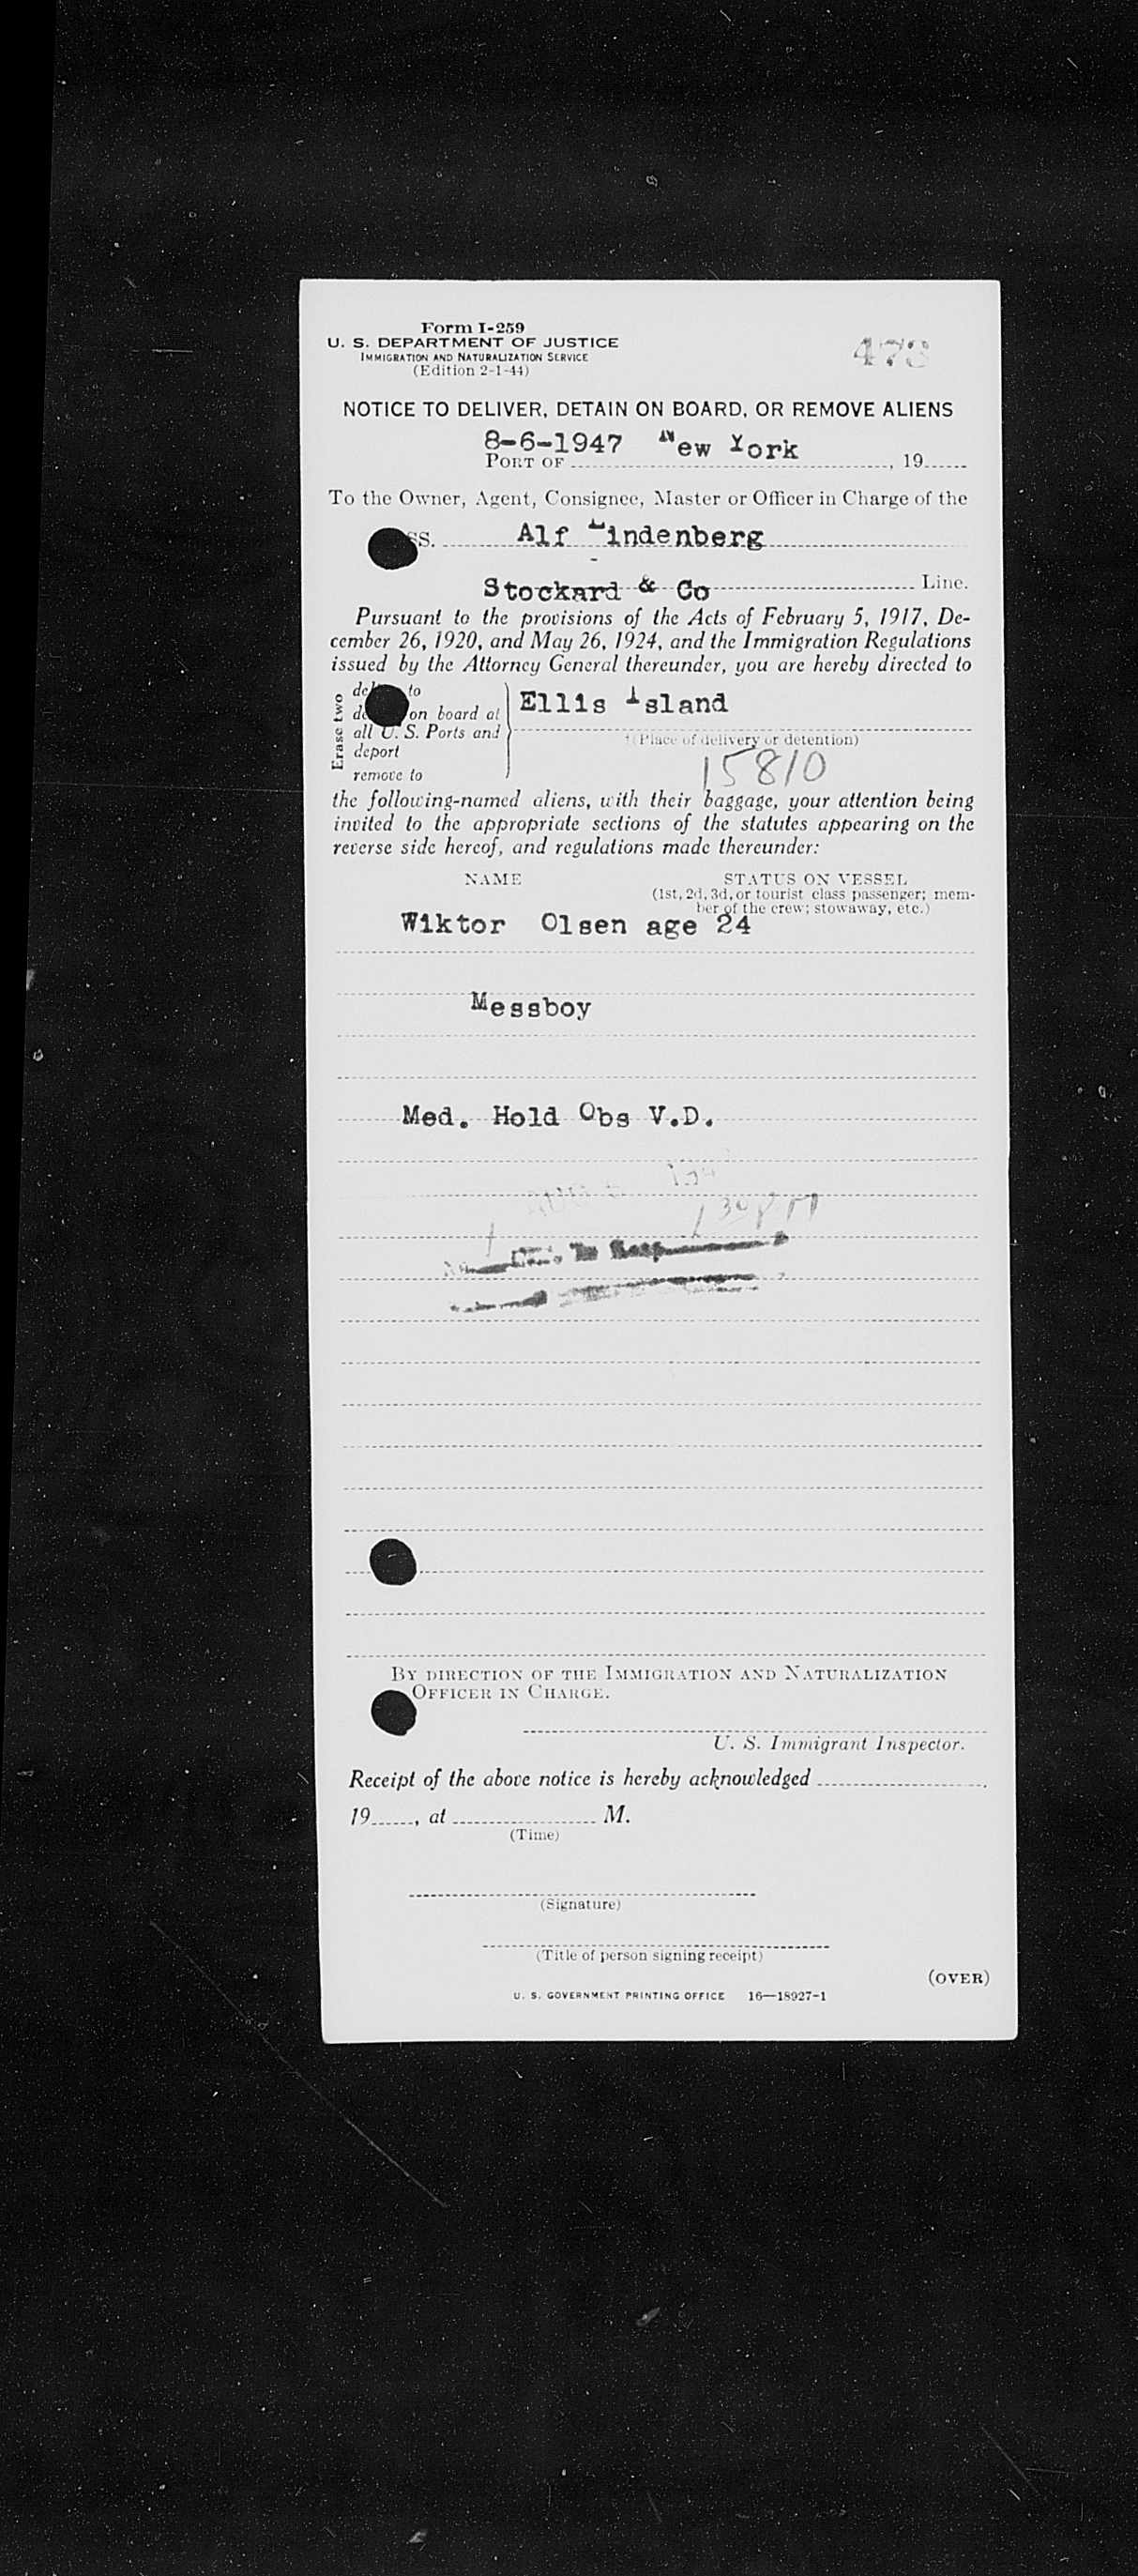 Form I-259
U. S. DEPARTMENT OF JUSTICE
IMMIGRATION AND NATURALIZATION SERVICE
(Edition 2-1-44)
473
NOTICE TO DELIVER, DETAIN ON BOARD, OR REMOVE ALIENS
8-6-1947 New York
PORT OF , 19
To the Owner, Agent, Consignee, Master or Officer in Charge of the
SS. Alf Lindenberg
Stockard & Co Line.
Pursuant to the provisions of the Acts of February 5, 1917, De-
cember 26, 1920, and May 26, 1924, and the Immigration Regulations
issued by the Attorney General thereunder, you are hereby directed to
Erase two
to
on board at
all U. S. Ports and
deport
remove to
Ellis Island
(Place of delivery or detention)
15810
the following-named aliens, with their baggage, your attention being
invited to the appropriate sections of the statutes appearing on the
reverse side hereof, and regulations made thereunder:
NAME STATUS ON VESSEL
(1st, 2d, 3d, or tourist class passenger; mem-
ber of the crew; stowaway, etc.)
Wiktor Olsen age 24
Messboy
Med. Hold Obs V.D.
1 30 PM
BY DIRECTION OF THE IMMIGRATION AND NATURALIZATION
OFFICER IN CHARGE.
U. S. Immigrant Inspector.
Receipt of the above notice is hereby acknowledged
19 , at M.
(Time)
(Signature)
(Title of person signing receipt)
(OVER)
U. S. GOVERNMENT PRINTING OFFICE 16—18927-1